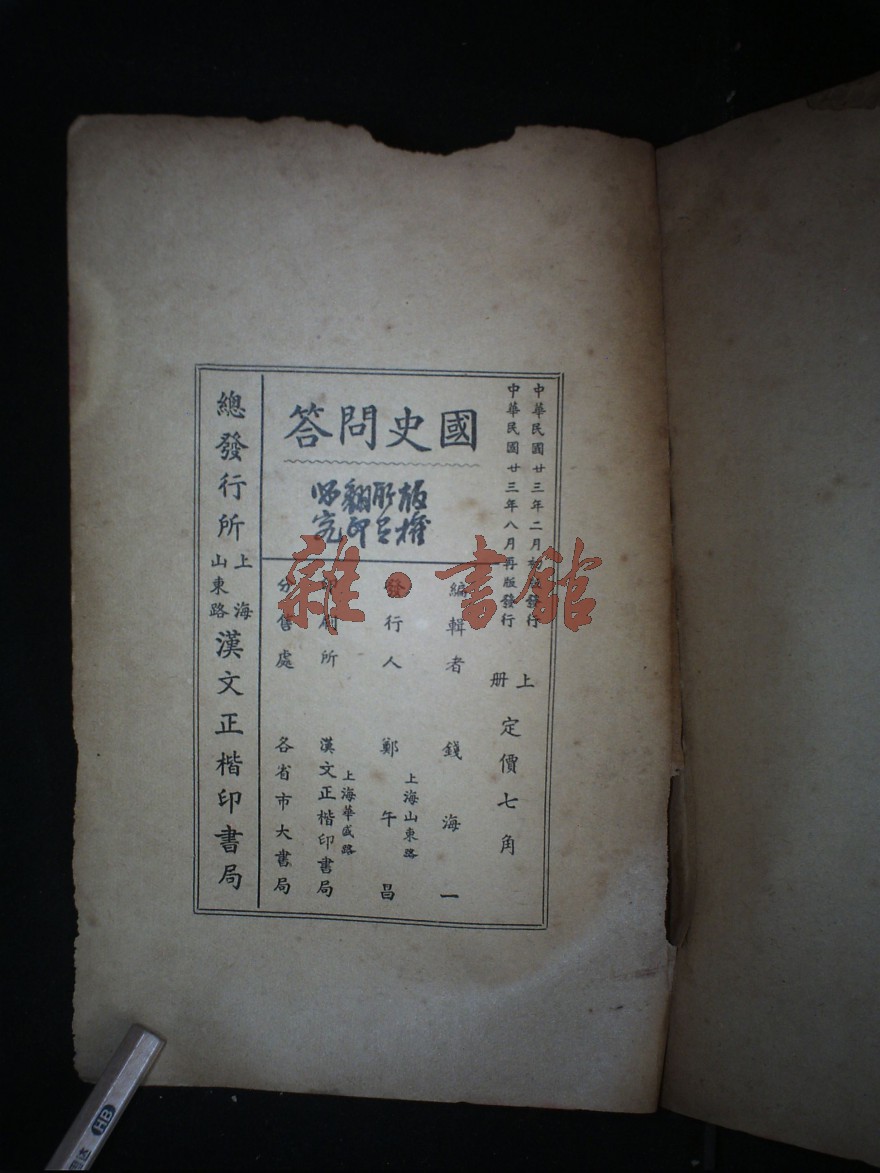 中華民國廿三年二月初版發行
中華民國廿三年八月再版發行
上册
定價七角
國史問答
版權
所有
翻印
必究
編輯者
錢海一
發行人
上海山東路
鄭午昌
印刷所
上海華盛路
漢文正楷印書局
分售處
各省市大書局
總發行所
上海
山東路
漢文正楷印書局
雜·書館
HB